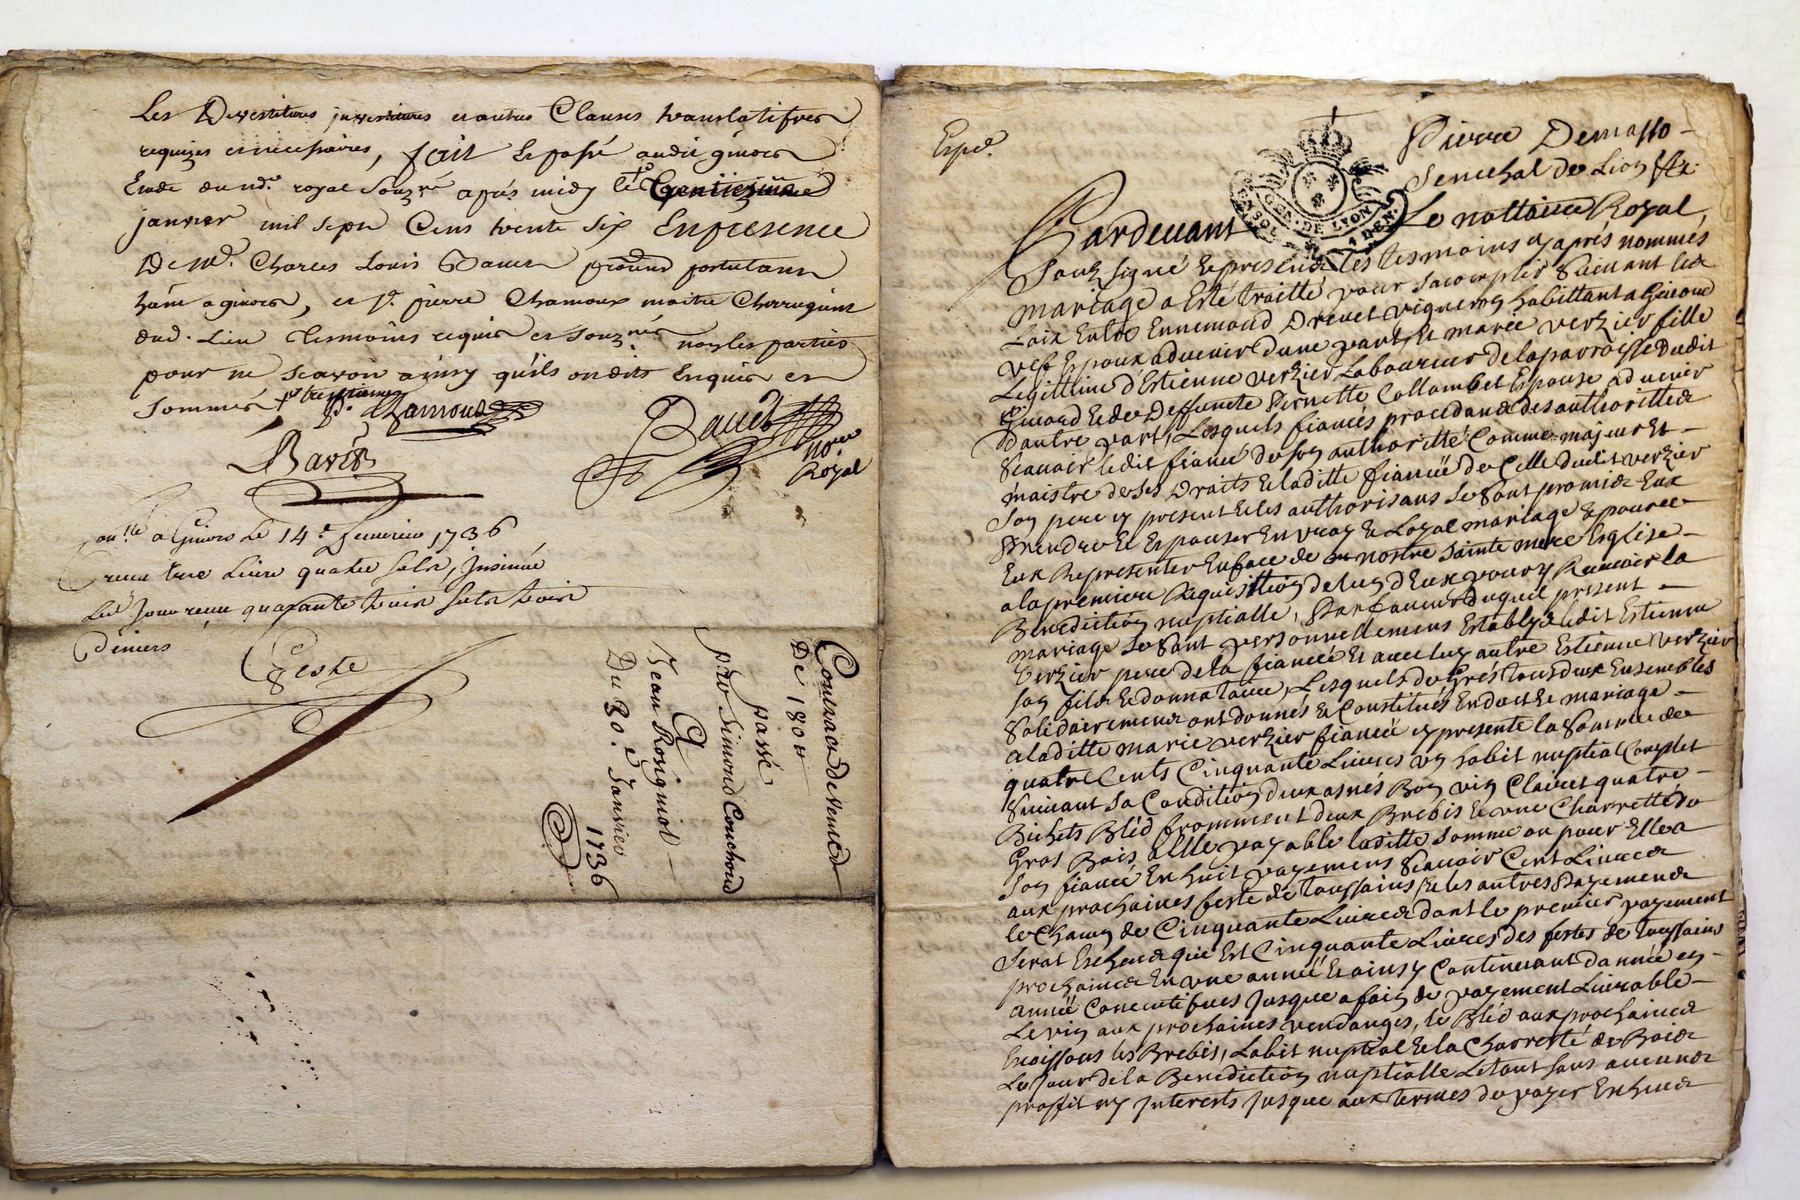 Les Devestitures jnvestitures et autres Clauses translatifves
requizes et nécéssaires, fait et passé audit givors
Etude du nd.e royal Souz.né aprés midy le
janvier mil sept Cens trente six En presence
De M.e Charles Louis procureur postulant
a givors, et S.r pierre Chamoux maitre Chirurgient
dud. Lieu tesmoins requis et Souz.nés non les parties
pour ne Scavoir ainsy quils ont dits Enquis et
Sommés trentieme
P. Chamoux
Bavet
nore
Royal
a Givors Le 14.e 1736
Livre quatre sols, Jnsinué
Led Jour receu quarante trois sols trois
Deniers
Geste
Contract de vente
De 180 tt
passé
p.r Simond Couchoud
A
Jean Rosignol
Du 30.e Janvier
1736
Exped.
GEN. DE LYON
4 DEN.
Pierre Demasso
Senechal de Lion &c.
Pardevant Le nottaire Royal,
Souz signé Et presence les tesmoins cy aprés nommés
mariage a Esté traitté pour sacomplir Suivant les
Loix Entre Ennemond Drevet vigneron habittant a
Espoux advenir dune part, Et marie verzier fille
Legittime d'Estienne verzier Laboureur de la parroisse dudit
Et de deffuncte Pernette Collombet Espouse advenir
Dautre part, Lesquels fiancés procedant des authorittés
Scavoir ledit fiancé de son authoritté Comme majeur Et
maistre de ses Droits Et laditte fiancée de Celle dudit verzier
son pere cy present Et les authorisans Se Sont promis Eux
Prendre Et Espouser En vray Et Loyal mariage Et pource
Eux Representer En face de nostre Sainte mere Esglise
a la premiere Requisittion de lun d'Eux pour y Recevoir la
Benediction nuptialle, En faveur duquel present
mariage Se Sont personnellement Establys ledit Estienne
Verzier pere de la fiancée Et avec luy autre Estienne verzier
son fils Et donnataire, Lesquels de grés tous deux Ensembles
Solidairement ont donnés Et Constitués En dost Et mariage
a laditte marie verzier fiancée cy presente la Somme de
quatre Cents Cinquante Livres un habit nuptial Complet
Suivant sa Condition deux asnés Bon vin Clairet quatre
Bichets Bléd fromment deux Brebis Et une Charretté de
Gros Bois, Elle payable laditte Somme ou pour Elle a
son fiancé En huit payemens Scavoir Cent Livres
aux prochaines feste de Toussains, Et les autres Payemens
de Cinquante Livres dont le premier payement
Serat Escheu qui Est Cinquante Livres des festes de Toussains
prochaines En une année Et ainsy Continuant dannée en
année Consecutifves Jusques a fain de payement Livrable
Le vin aux prochaines vendanges, le Bléd aux prochaines
moissons les Brebis, Labit nuptial Et la Charretté de Bois
Le Jour de la Benediction nuptialle Le tout sans aucunes
proffit ny Jnterests Jusques aux termes de payer Escheus